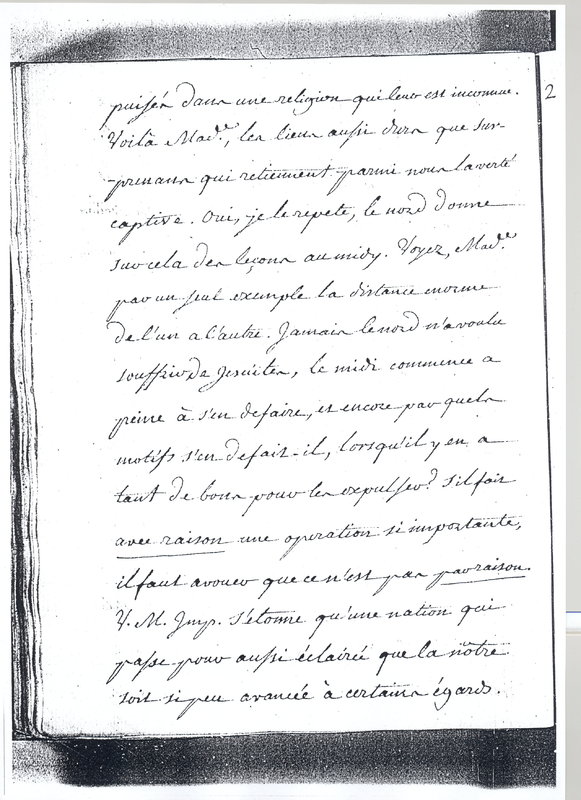 puisés dans une religion qui leur est inconnue.
2
Voilà Mad.e, les liens aussi durs que sur-
-prenans qui retiennent parmi nous la verité
captive. Oui, je le repete, le nord donne
sur cela des leçons au midy. Voyez, Mad.e
par un seul exemple la distance enorme
de l'un a l'autre. Jamais le nord n'a voulu
souffrir de Jesuites, le midi commence a
peine à s'en defaire, et encore par quels
motifs s'en defait-il, lorsqu'il y en a
tant de bons pour les expulser? S'il fait
avec raison une operation si importante,
il faut avouer que ce n'est pas par raison.
V. M. Imp. s'étonne qu'une nation qui
passe pour aussi éclairée que la nôtre
soit si peu avancée à certains égards.